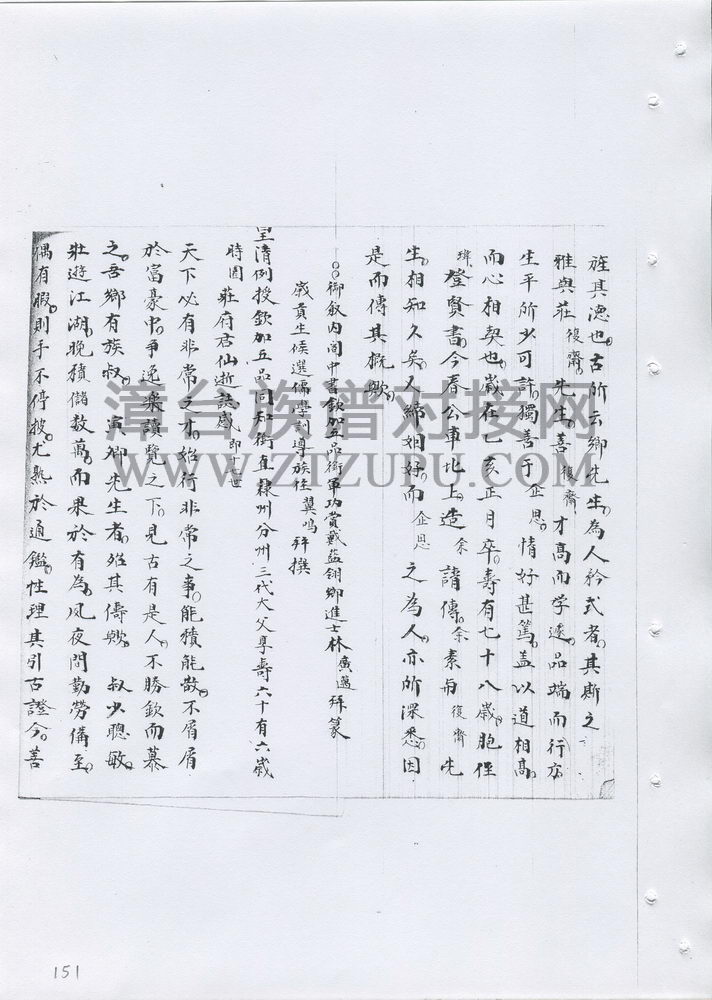 旌其德也古所云鄉先生為人矜式者其斯之
雅與莊復齋先生善復齋才高而学邃品端而行
生平所少可許獨善于企恩情好甚篤盖以道相高
而心相契也歲在乙亥正月卒壽有七十八歲胞侄
瑋登賢書今春公車北上造余請傳余素与復齋先
生相知久矣又締姻好而企恩之為人亦所深悉因
是而傳其概歟
御敘内閣中書欽加五品銜軍功賞戴藍翎鄉進士林廣邁拜篆
歲貢生候選儒學訓導族侄翼鳴拜撰
皇清例授欽加五品同知銜直隸州分州三代大父享壽六十有六歲
時園莊府君仙逝誌感
天下必有非常之才始行非常之事能積能散不屑屑
於富豪中爭逸樂讀覽之下見古有是人不勝欽而慕
之吾鄉有族叔寅卿先生者殆其儔歟叔少聰敏
壯遊江湖晚積儲数萬而果於有為夙夜間勤勞備至
偶有暇則手不停披尤熟於通鑑性理其引古證今善
漳台族谱对接网
WWW.ZTZUPU.COM
151